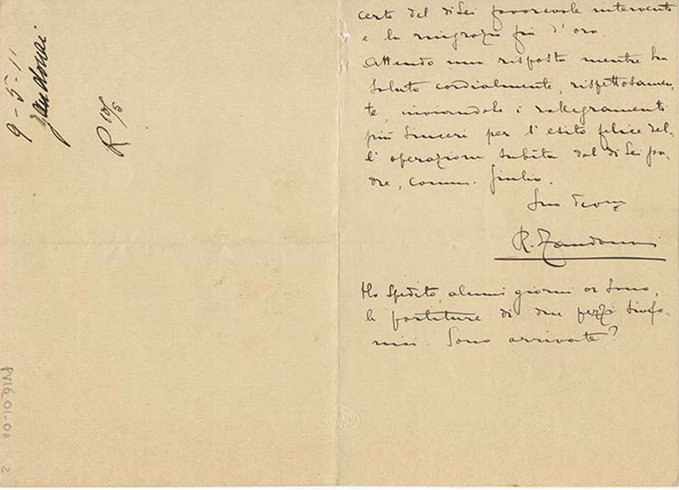 9-5-11
Zandonai
R 10/5
certo del di Lei favorevole intervento
e la ringrazio fin d'ora.
Attendo una risposta mentre La
saluto cordialmente, rispettosamen-
te, inviandole i rallegramenti
più sinceri per l'esito felice del-
l'operazione subita dal di Lei pa-
dre, comm. Giulio.
Suo devoto
R. Zandonai
Ho spedito, alcuni giorni or sono,
le partiture di due pezzi sinfo-
nici. Sono arrivate?
2